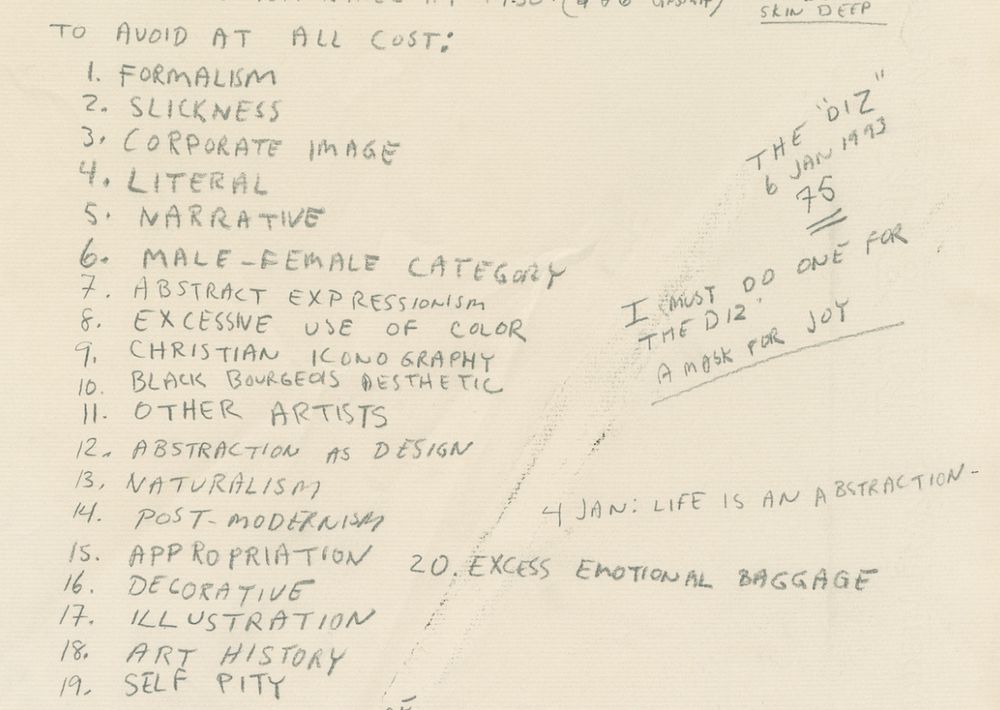 SKIN DEEP
TO AVOID AT ALL COST:
1. FORMALISM
2. SLICKNESS
3. CORPORATE IMAGE
4. LITERAL
5. NARRATIVE
6. MALE-FEMALE CATEGORY
7. ABSTRACT EXPRESSIONISM
8. EXCESSIVE USE OF COLOR
9. CHRISTIAN ICONOGRAPHY
10. BLACK BOURGEOIS AESTHETIC
11. OTHER ARTISTS
12. ABSTRACTION AS DESIGN
13. NATURALISM
14. POST-MODERNISM
15. APPROPRIATION
16. DECORATIVE
17. ILLUSTRATION
18. ART HISTORY
19. SELF PITY
20. EXCESS EMOTIONAL BAGGAGE
THE "DIZ"
6 JAN 1993
75
I MUST DO ONE FOR
THE DIZ.
A MASK FOR JOY
4 JAN: LIFE IS AN ABSTRACTION-